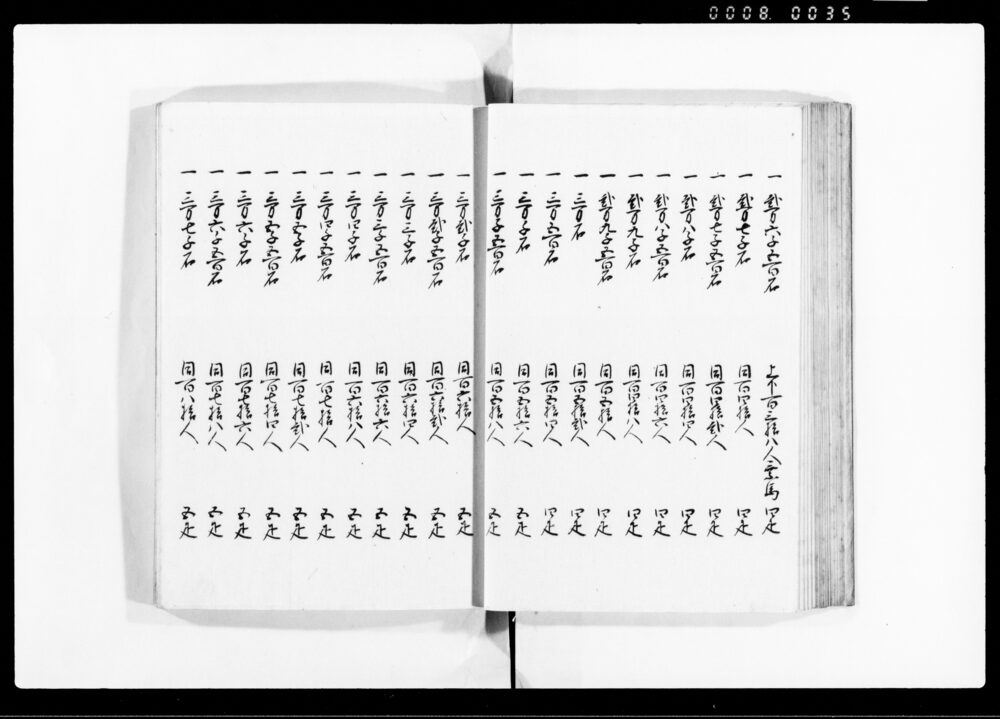 0008 0035
一 弐万六千五百石 上下百三拾八人 乗馬 四疋
一 弐万七千石 同百四拾人 四疋
一 弐万七千五百石 同百四拾弐人 四疋
一 弐万八千石 同百四拾四人 四疋
一 弐万八千五百石 同百四拾六人 四疋
一 弐万九千石 同百四拾八人 四疋
一 弐万九千五百石 同百五拾人 四疋
一 三万石 同百五拾弐人 四疋
一 三万五百石 同百五拾四人 四疋
一 三万千石 同百五拾六人 五疋
一 三万千五百石 同百五拾八人 五疋
一 三万弐千石 同百六拾人 五疋
一 三万弐千五百石 同百六拾弐人 五疋
一 三万三千石 同百六拾四人 五疋
一 三万三千五百石 同百六拾六人 五疋
一 三万四千石 同百六拾八人 五疋
一 三万四千五百石 同百七拾人 五疋
一 三万五千石 同百七拾弐人 五疋
一 三万五千五百石 同百七拾四人 五疋
一 三万六千石 同百七拾六人 五疋
一 三万六千五百石 同百七拾八人 五疋
一 三万七千石 同百八拾人 五疋